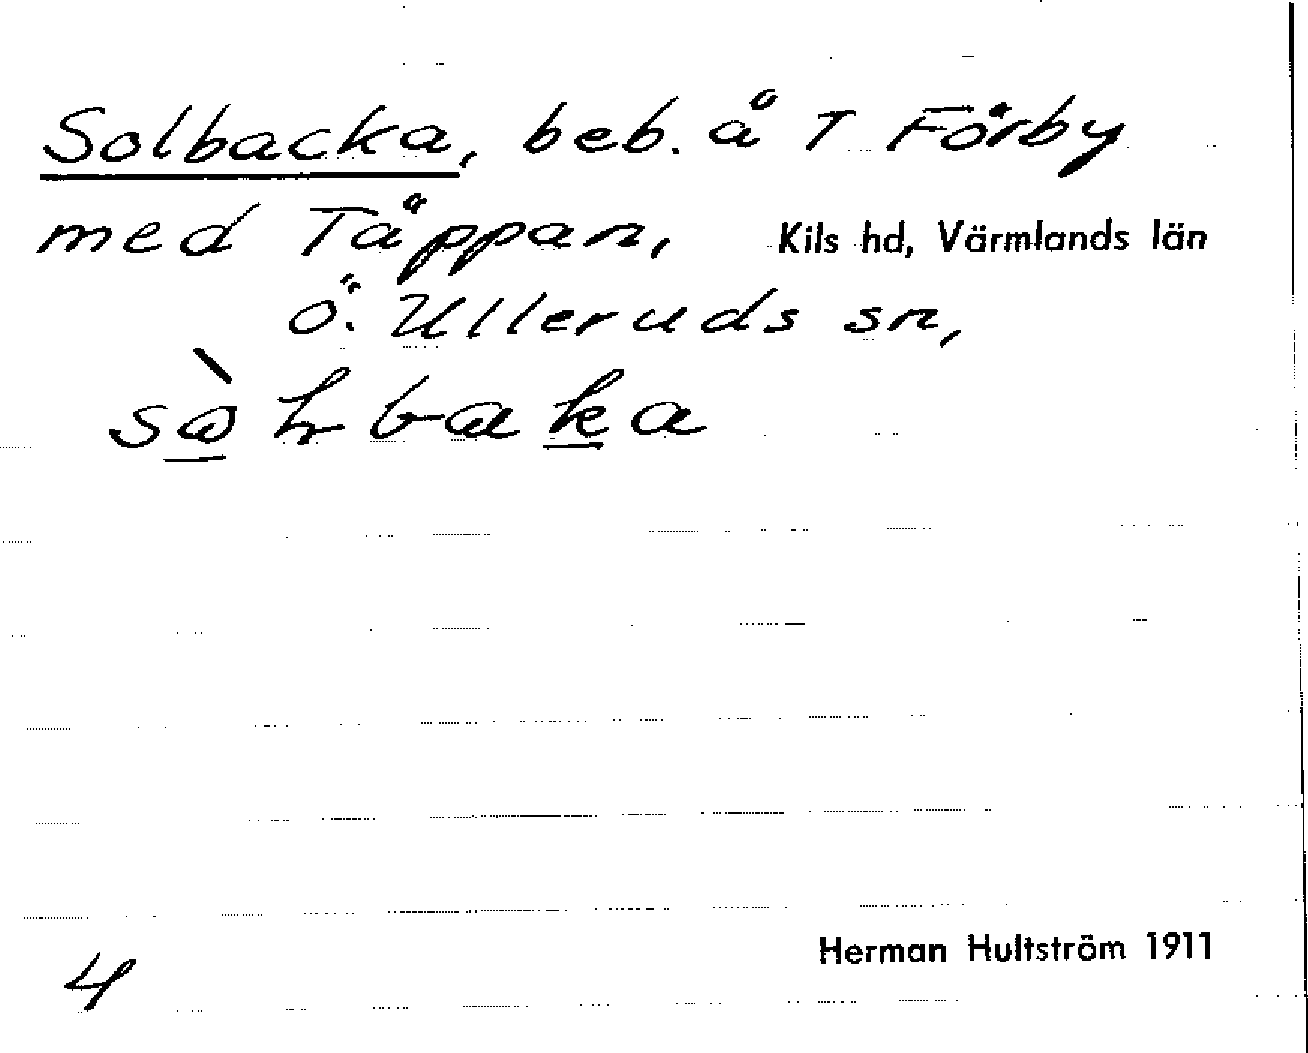 Solbacka, beb. å T Förby
med Täppan, Kils hd, Värmlands län
Ö. Ulleruds sn,
4
Herman Hultström 1911